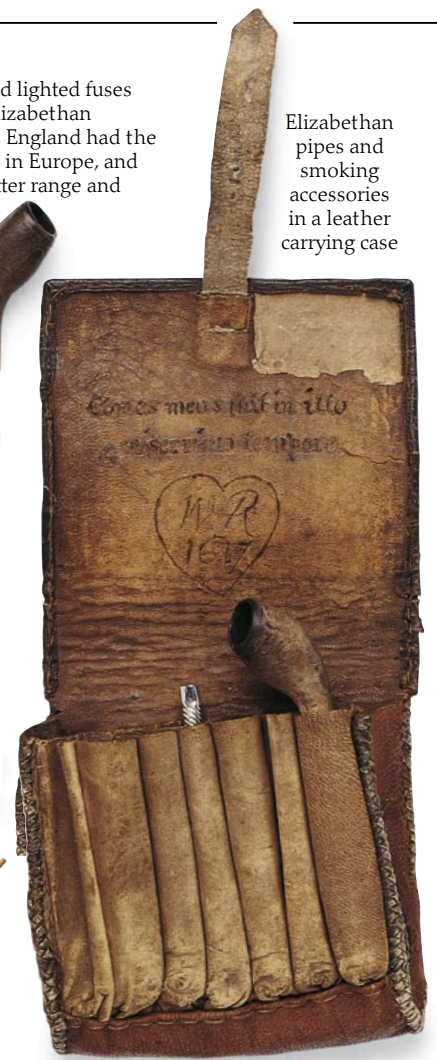 d lighted fuses
izabethan
England had the
in Europe, and
tter range and
Elizabethan
pipes and
smoking
accessories
in a leather
carrying case
Comes meus fuit in illo
tempore
WR
1617